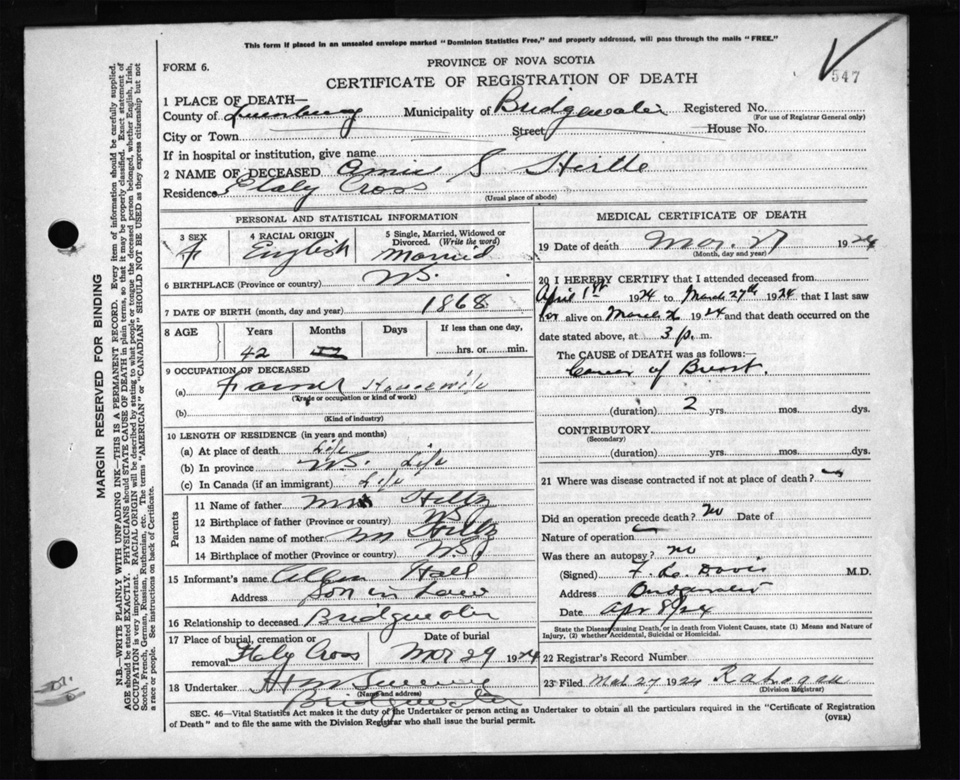 This form if placed in an unsealed envelope marked "Dominion Statistics Free," and properly addressed, will pass through the mails "FREE."
PROVINCE OF NOVA SCOTIA
FORM 6.
CERTIFICATE OF REGISTRATION OF DEATH
547
1 PLACE OF DEATH—
County of Lunenburg Municipality of Bridgewater Registered No.
(For use of Registrar General only)
City or Town Street House No.
If in hospital or institution, give name
2 NAME OF DECEASED Amie S Hirtle
Residence Italy Cross
(Usual place of abode)
PERSONAL AND STATISTICAL INFORMATION
3 SEX 4 RACIAL ORIGIN 5 Single, Married, Widowed or Divorced. (Write the word)
F English Married
6 BIRTHPLACE (Province or country) N.S.
7 DATE OF BIRTH (month, day and year) 1868
8 AGE Years Months Days If less than one day,
42 hrs. or min.
9 OCCUPATION OF DECEASED
(a) Farmer Housewife
(Trade or occupation or kind of work)
(b)
(Kind of industry)
10 LENGTH OF RESIDENCE (in years and months)
(a) At place of death Life
(b) In province N.S. Life
(c) In Canada (if an immigrant) Life
Parents
11 Name of father Hiltz
12 Birthplace of father (Province or country) N.S.
13 Maiden name of mother Hiltz
14 Birthplace of mother (Province or country) N.S.
15 Informant's name Hall
Address Son in Law
16 Relationship to deceased Bridgewater
17 Place of burial, cremation or removal Italy Cross
Date of burial
Mar 29 1924
18 Undertaker
(Name and address)
Bridgewater
MEDICAL CERTIFICATE OF DEATH
19 Date of death Mar. 27 1924
(Month, day and year)
20 I HEREBY CERTIFY that I attended deceased from
April 1st 1924 to March 27th 1924 that I last saw
her alive on March 26 1924 and that death occurred on the
date stated above, at 3 p. m.
The CAUSE OF DEATH was as follows:—
Cancer of Breast.
(duration) 2 yrs. mos. dys.
CONTRIBUTORY
(Secondary)
(duration) yrs. mos. dys.
21 Where was disease contracted if not at place of death?
Did an operation precede death? No Date of
Nature of operation
Was there an autopsy? No
(Signed) Davis M.D.
Address Bridgewater
Date Apr 8/24
State the Disease causing Death, or in death from Violent Causes, state (1) Means and Nature of Injury, (2) whether Accidental, Suicidal or Homicidal.
22 Registrar's Record Number
23 Filed Mar 27 1924
(Division Registrar)
SEC. 46—Vital Statistics Act makes it the duty of the Undertaker or person acting as Undertaker to obtain all the particulars required in the "Certificate of Registration
of Death" and to file the same with the Division Registrar who shall issue the burial permit.
(OVER)
MARGIN RESERVED FOR BINDING
N.B.—WRITE PLAINLY WITH UNFADING INK—THIS IS A PERMANENT RECORD. Every item of information should be carefully supplied.
AGE should be stated EXACTLY. PHYSICIANS should STATE CAUSE OF DEATH in plain terms, so that it may be properly classified. Exact statement of
OCCUPATION is very important. RACIAL ORIGIN will be described by stating to what people or tongue the deceased person belonged, whether English, Irish,
Scotch, French, German, Russian, Ruthenian, etc. The terms "AMERICAN" or "CANADIAN" SHOULD NOT BE USED as they express citizenship but not
a race or people. See instructions on back of Certificate.